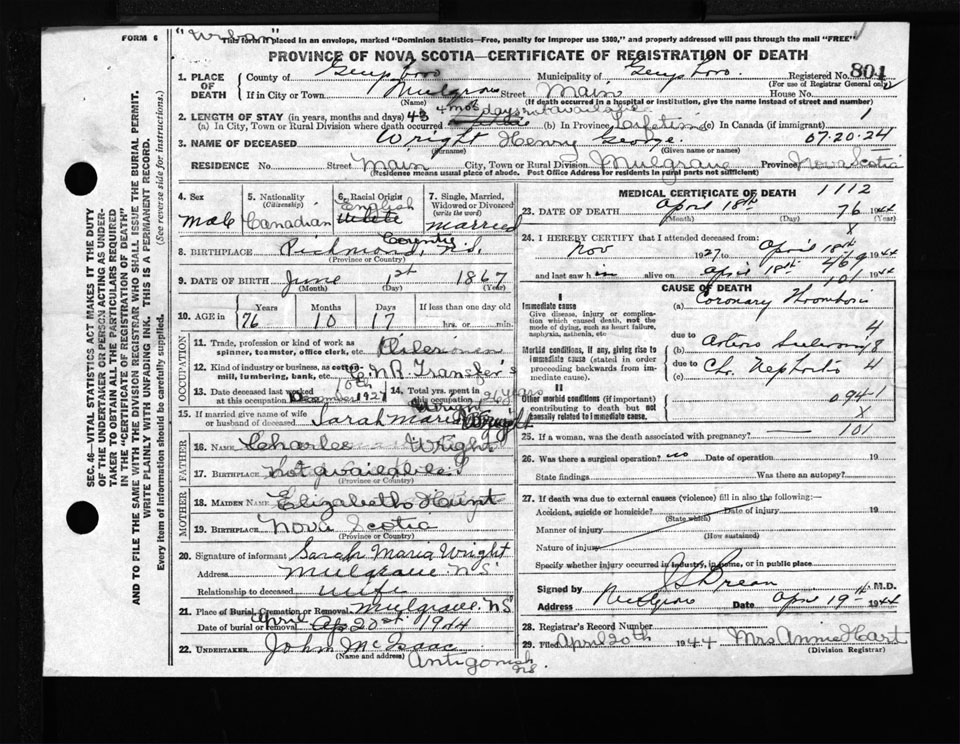 FORM 6
"Urban"
This form if placed in an envelope, marked "Dominion Statistics—Free, penalty for improper use $300," and properly addressed will pass through the mail "FREE"
PROVINCE OF NOVA SCOTIA—CERTIFICATE OF REGISTRATION OF DEATH
1. PLACE OF DEATH
County of Guysboro Municipality of Guysboro. Registered No. 804
(For use of Registrar General only)
If in City or Town Mulgrave Street Main House No.
(Name) (If death occurred in a hospital or institution, give the name instead of street and number)
2. LENGTH OF STAY (in years, months and days) 43 4 mos days not available
(a) In City, Town or Rural Division where death occurred (b) In Province Lifetime (c) In Canada (if immigrant)
3. NAME OF DECEASED Wright Henry George 07-20-24
(Surname) (Given name or names)
RESIDENCE No. Street Main City, Town or Rural Division Mulgrave Province Nova Scotia
(Residence means usual place of abode. Post Office Address for residents in rural parts not sufficient)
4. Sex
Male
5. Nationality
(Citizenship)
Canadian
6. Racial Origin
English
White
7. Single, Married, Widowed or Divorced
(write the word)
Married
8. BIRTHPLACE Richmond County, N.S.
(Province or Country)
9. DATE OF BIRTH June 1st 1867
(Month) (Day) (Year)
10. AGE in
Years Months Days If less than one day old
76 10 17 hrs. or min.
OCCUPATION
11. Trade, profession or kind of work as spinner, teamster, office clerk, etc.
12. Kind of industry or business, as cotton-mill, lumbering, bank, etc. C.N.R. Transfers
13. Date deceased last worked at this occupation December 10th 1927
14. Total yrs. spent in this occupation 26 years
15. If married give name of wife or husband of deceased Sarah Maria Wright
FATHER
16. NAME Charles Wright
17. BIRTHPLACE Not available
(Province or Country)
MOTHER
18. MAIDEN NAME Elizabeth Hurst
19. BIRTHPLACE Nova Scotia
(Province or Country)
20. Signature of informant Sarah Maria Wright
Address Mulgrave NS
Relationship to deceased wife
21. Place of Burial, Cremation or Removal Mulgrave, NS
Date of burial or removal April 20st 1944
22. UNDERTAKER John McIsaac
(Name and address) Antigonish NS
MEDICAL CERTIFICATE OF DEATH 1112
23. DATE OF DEATH April 18th 76 1944
(Month) (Day) (Year)
X
24. I HEREBY CERTIFY that I attended deceased from:
Nov 1927 to April 18th 1944
and last saw him alive on April 18th 1944
101
CAUSE OF DEATH
I
Immediate cause
Give disease, injury or complication which caused death, not the mode of dying, such as heart failure, asphyxia, asthenia, etc
(a) Coronary Thrombosis
due to 4
Morbid conditions, if any, giving rise to immediate cause (stated in order proceeding backwards from immediate cause).
(b) Arterio Sclerosis 8
due to
(c) Chr. Nephritis 4
II
Other morbid conditions (if important) contributing to death but not causally related to immediate cause.
094-1
X
101
25. If a woman, was the death associated with pregnancy?
26. Was there a surgical operation? no Date of operation 19
State findings Was there an autopsy?
27. If death was due to external causes (violence) fill in also the following:—
Accident, suicide or homicide? Date of injury 19
(State which)
Manner of injury
(How sustained)
Nature of injury
Specify whether injury occurred in industry, in home, or in public place
Signed by M.D.
Address Mulgrave Date April 19th 1944
28. Registrar's Record Number
29. Filed April 20th 1944 Mrs Annie Hart
(Division Registrar)
SEC. 46—VITAL STATISTICS ACT MAKES IT THE DUTY
OF THE UNDERTAKER OR PERSON ACTING AS UNDER-
TAKER TO OBTAIN ALL THE PARTICULARS REQUIRED
IN THE "CERTIFICATE OF REGISTRATION OF DEATH"
AND TO FILE THE SAME WITH THE DIVISION REGISTRAR WHO SHALL ISSUE THE BURIAL PERMIT.
WRITE PLAINLY WITH UNFADING INK. THIS IS A PERMANENT RECORD.
Every item of information should be carefully supplied. (See reverse side for instructions.)